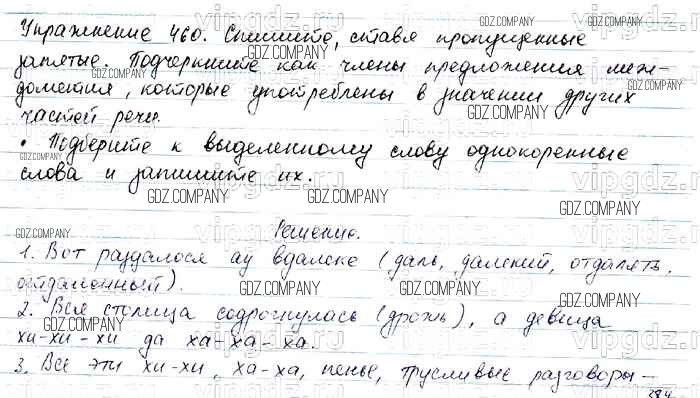 Упражнение 460. Спишите, ставя пропущенные
запятые. Подчеркните как члены предложения меж-
дометия, которые употреблены в значении других
частей речи.
• Подберите к выделенному слову однокоренные
слова и запишите их.
Решение.
1. Вот раздалося ау вдалеке (даль, далекий, отдалять,
отдаленный).
2. Вся столица содрогнулась (дрожь), а девица
хи-хи-хи да ха-ха-ха.
3. Все эти хи-хи, ха-ха, пенье, трусливые разговоры –
284
GDZ.COMPANY
vipgdz.ru